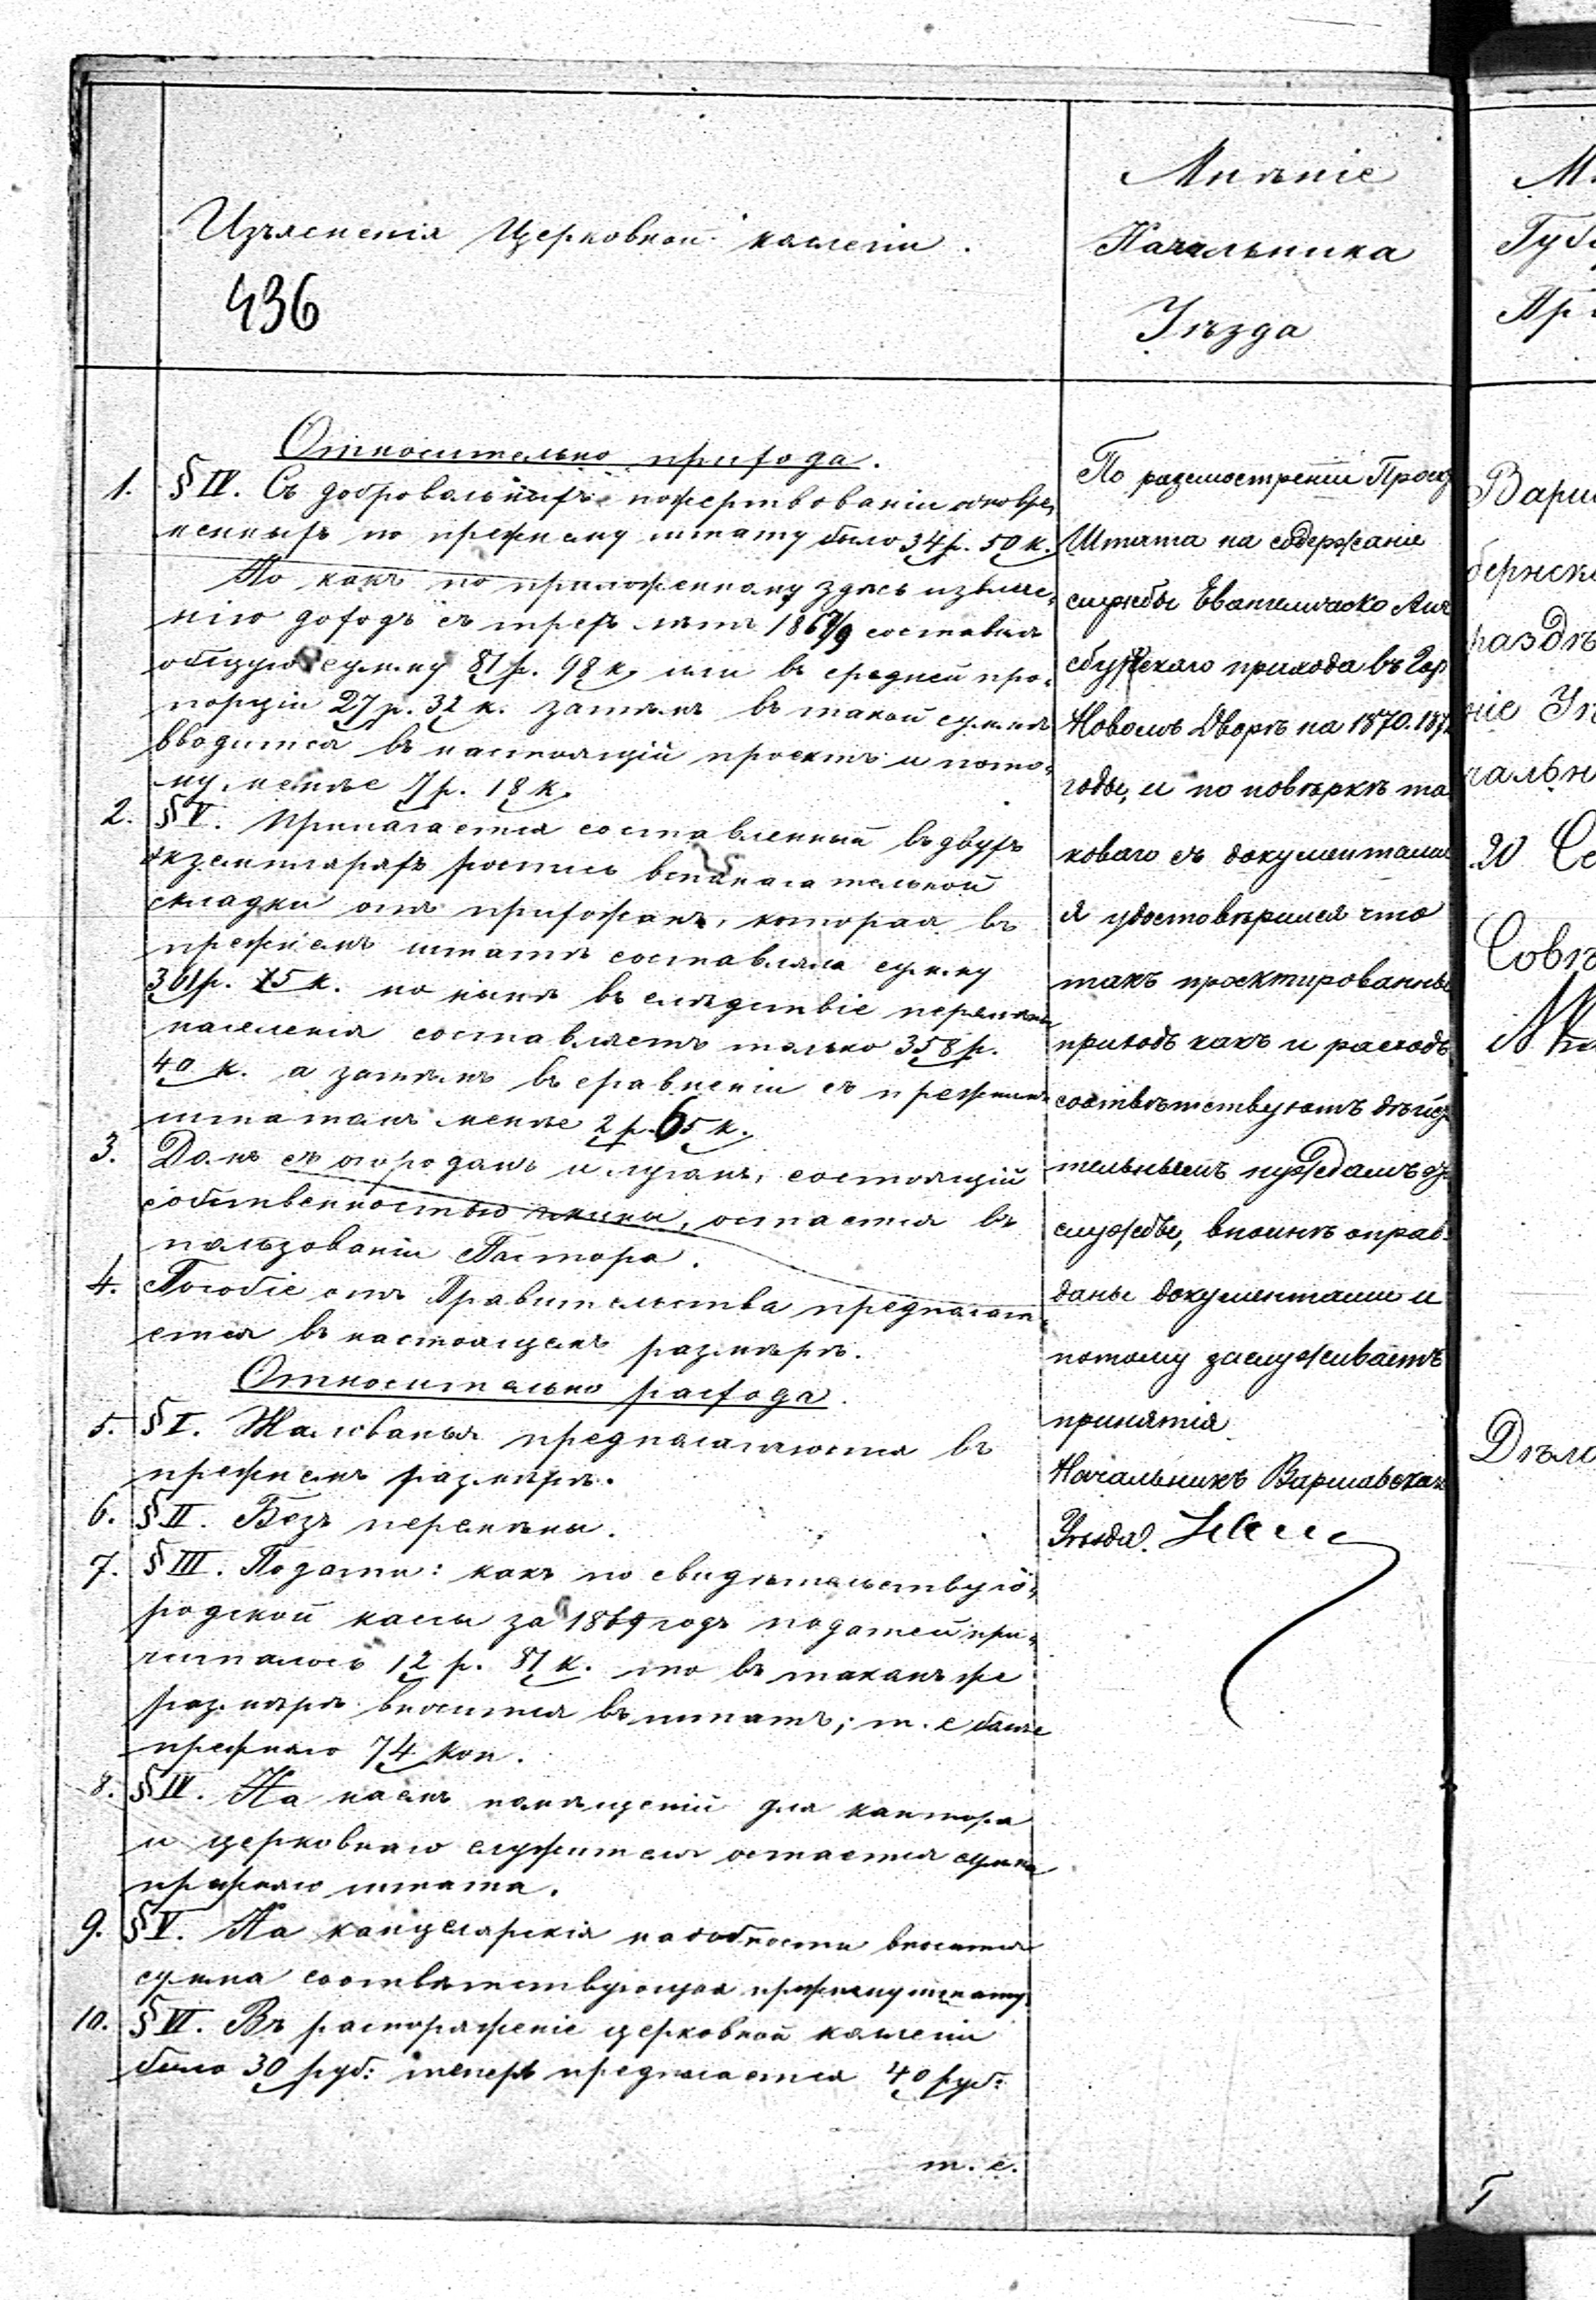 Изъясненія Церковной коллегіи.
436
Относительно прихода.
1. § IV. Съ добровольныхъ пожертвованій одновре-
менныхъ по прежнему штату было 34 р. 50 к.
Но какъ по приложенному здѣсь извлече-
нію доходъ съ трехъ лѣтъ 1867/9 составилъ
общую сумму 81 р. 98 к. или въ средней про-
порціи 27 р. 32 к. затѣмъ въ такой суммѣ
вводится въ настоящій проектъ и пото-
му менѣе 7 р. 18 к.
2. § V. Прилагается составленный въ двухъ
экземплярахъ роспись вспомогательной
складки отъ прихожанъ, которая въ
прежнемъ штатѣ составляла сумму
361 р. 5 к. но нынѣ въ слѣдствіе перемѣны
населенія составляетъ только 358 р.
40 к. а затѣмъ въ сравненіи съ прежнимъ
штатомъ менѣе 2 р. 65 к.
3. Домъ съ огородомъ и лугомъ, состоящій
собственностью, остается въ
пользованіи Пастора.
4. Пособіе отъ Правительства предполага-
ется въ настоящемъ размѣрѣ.
Относительно расхода.
5. § I. Жалованья предполагаются въ
прежнемъ размѣрѣ.
6. § II. Безъ перемѣны.
7. § III. Подати: какъ по свидѣтельству го-
родской кассы за 1869 годъ податей при-
читалось 12 р. 81 к. то въ такомъ же
размѣрѣ вносится въ штатъ; т. е болѣе
прежняго 74 коп.
8. § IV. На наемъ помѣщеній для кантора
и церковнаго служителя остается сумма
прежняго штата.
9. § V. На канцелярскія надобности вносится
сумма соотвѣтствующая прежнему штату.
10. § VI. Въ распоряженіе церковной коллегіи
было 30 руб: теперь предлагается 40 руб:
т. е.
Мнѣніе
Начальника
Уѣзда
По разсмотреніи Проэк
Штата на содержаніе
службы Евангелическо Аугс
бургскаго прихода въ Гор
Новомъ Дворѣ на 1870.187
годы, и по повѣркѣ та
коваго съ документами
я удостовѣрился что
такъ проэктированные
приходъ какъ и расходъ
соотвѣтствуютъ дѣйст
тельнымъ нуждамъ
службы, вполнѣ оправ-
даны документами и
потому заслуживаетъ
принятія
Начальникъ Варшавскаго
Уѣзда.
М
Губе
Пр
Варш
бернск
раздѣ
ніе Уѣ
чальн
20 Се
Совѣ
Дѣло